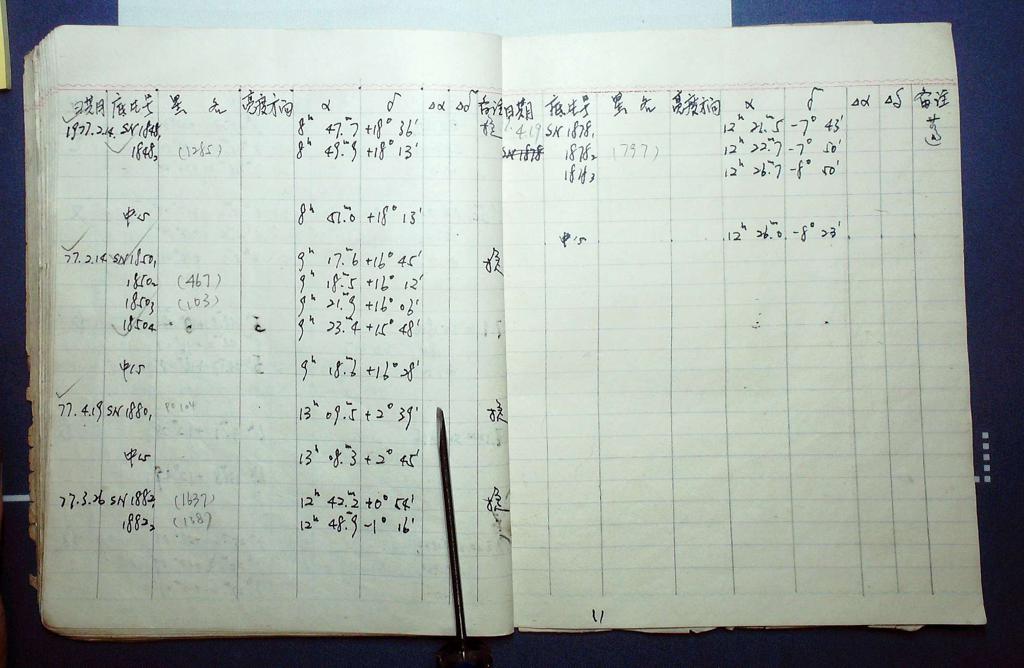 日期 底片号 星名 亮度方向 α δ Δα Δδ 备注
1977.2.14. SN1848₁ 8ʰ 47.ᵐ7 +18° 36′
1848₂ (1285) 8ʰ 49.ᵐ9 +18° 13′
中心 8ʰ 51.ᵐ0 +18° 13′
77.2.14 SN1850₁ 9ʰ 17.ᵐ6 +16° 45′
1850₂ (467) 9ʰ 18.ᵐ5 +16° 12′
1850₃ (103) 9ʰ 21.ᵐ9 +16° 03′
1850₄ 9ʰ 23.ᵐ4 +15° 48′
中心 9ʰ 18.ᵐ6 +16° 28′
77.4.19 SN1880₁ 13ʰ 09.ᵐ5 +2° 39′
中心 13ʰ 08.ᵐ3 +2° 45′
77.3.26 SN1882₁ (1637) 12ʰ 42.ᵐ2 +0° 54′
1882₂ (138) 12ʰ 48.ᵐ9 -1° 16′
日期 底片号 星名 亮度方向 α δ Δα Δδ 备注
4.19 SN1878₁ 12ʰ 21.ᵐ5 -7° 43′
SN1878 1878₂ (797) 12ʰ 22.ᵐ7 -7° 50′
12ʰ 26.ᵐ7 -8° 50′
中心 12ʰ 26.ᵐ0 -8° 23′
11